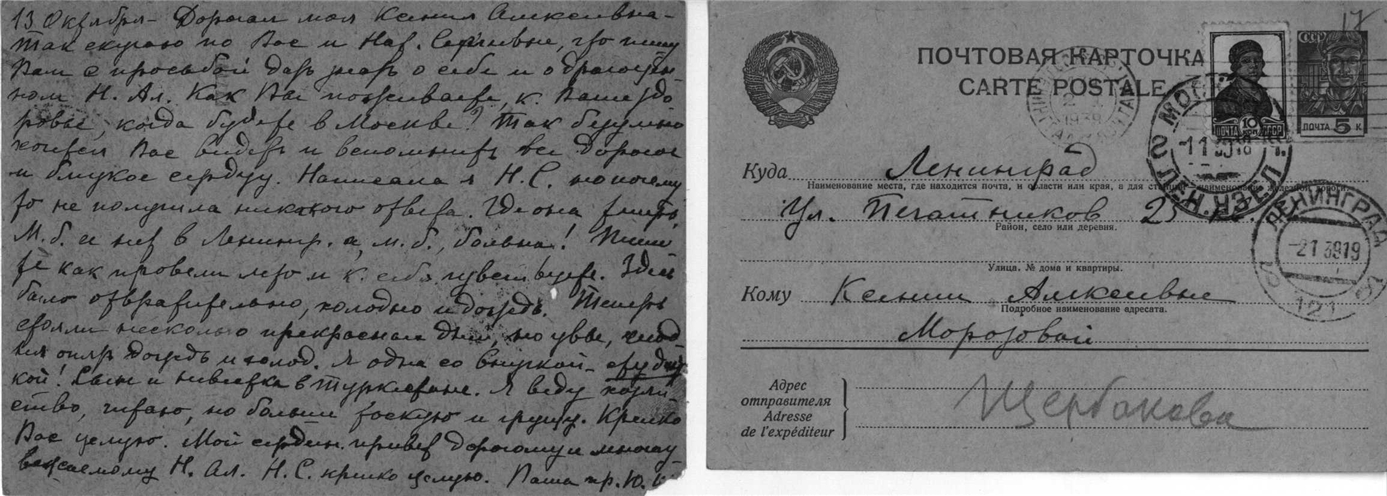 13 Октября - Дорогая моя Ксения Алексеевна -
так скучаю по Вас и Нат. Сергеевне, что пишу
Вам с просьбой дать знать о себе и о драгоцен-
ном Н. Ал. Как Вы поживаете, к. Ваше здо-
ровье, когда будете в Москве? Так безумно
хочется Вас видеть и вспомнить все дорогое
и близкое сердцу. Написала я Н.С. но почему
то не получила никакого ответа. Где она
М.б. ее нет в Ленингр. а, м.б., больна! Пиши-
те как провели лето и к. себя чувствуете. Здесь
было отвратительно, холодно и дождь. Теперь
стояли несколько прекрасных дней, но увы,
опять дождь и холод. Я одна со внучкой -
кой! Сын и невестка в Туркестане. Я веду хозяй-
ство, читаю, но больше тоскую и грущу. Крепко
Вас целую. Мой сердечн. привет дорогому и многоу-
важаемому Н. Ал. Н.С. крепко целую. Ваша
17
ПОЧТОВАЯ КАРТОЧКА
CARTE POSTALE
СССР
ПОЧТА 10 КОП. СССР
ПОЧТА 5 К.
1939
МОСКВА
ЛЕНИНГРАД
-21 3919
121
Куда Ленинград
Наименование места, где находится почта, и области или края, а для станций наименование железной дороги
Ул. Печатников 25
Район, село или деревня.
Улица, № дома и квартиры.
Кому Ксении Алексеевне
Подробное наименование адресата.
Морозовой
Адрес
отправителя
Adresse
de l'expéditeur
Щербакова